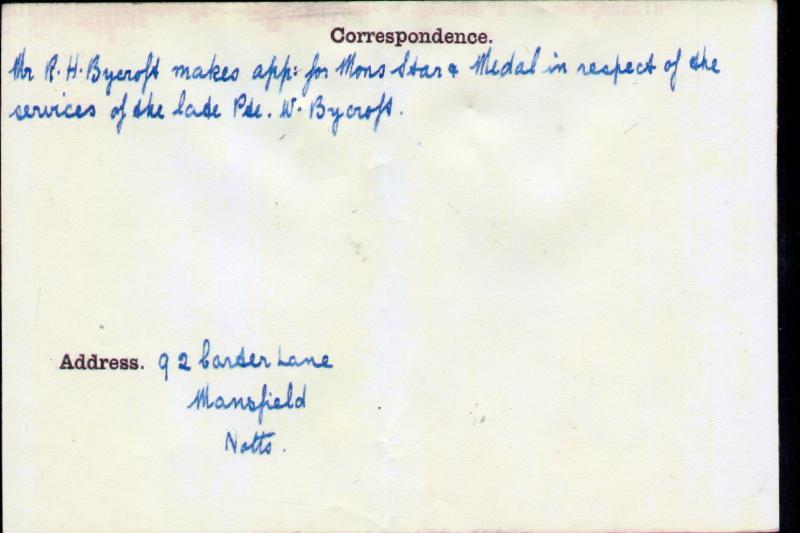 Correspondence.
Mr R. H. Bycroft makes app: for Mons Star & Medal in respect of the
services of the late Pte. W. Bycroft.
Address. 92 Carter Lane
Mansfield
Notts.